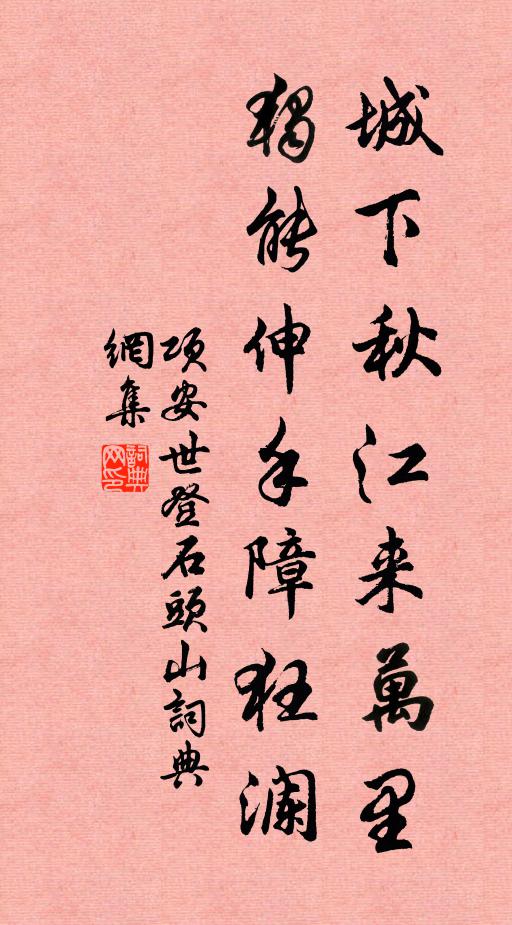 城下秋江来萬里
獨能伸手障狂瀾
項安世登石頭山詞典
網集
詞典网印